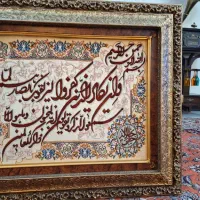 بسم الله الرحمن الرحیم
وان یکاد الذین کفروا لیزلقونک بابصار
لما سمعوا الذکر و یقولون انه لمجنون و ما هو الا
ذکر للعالمین